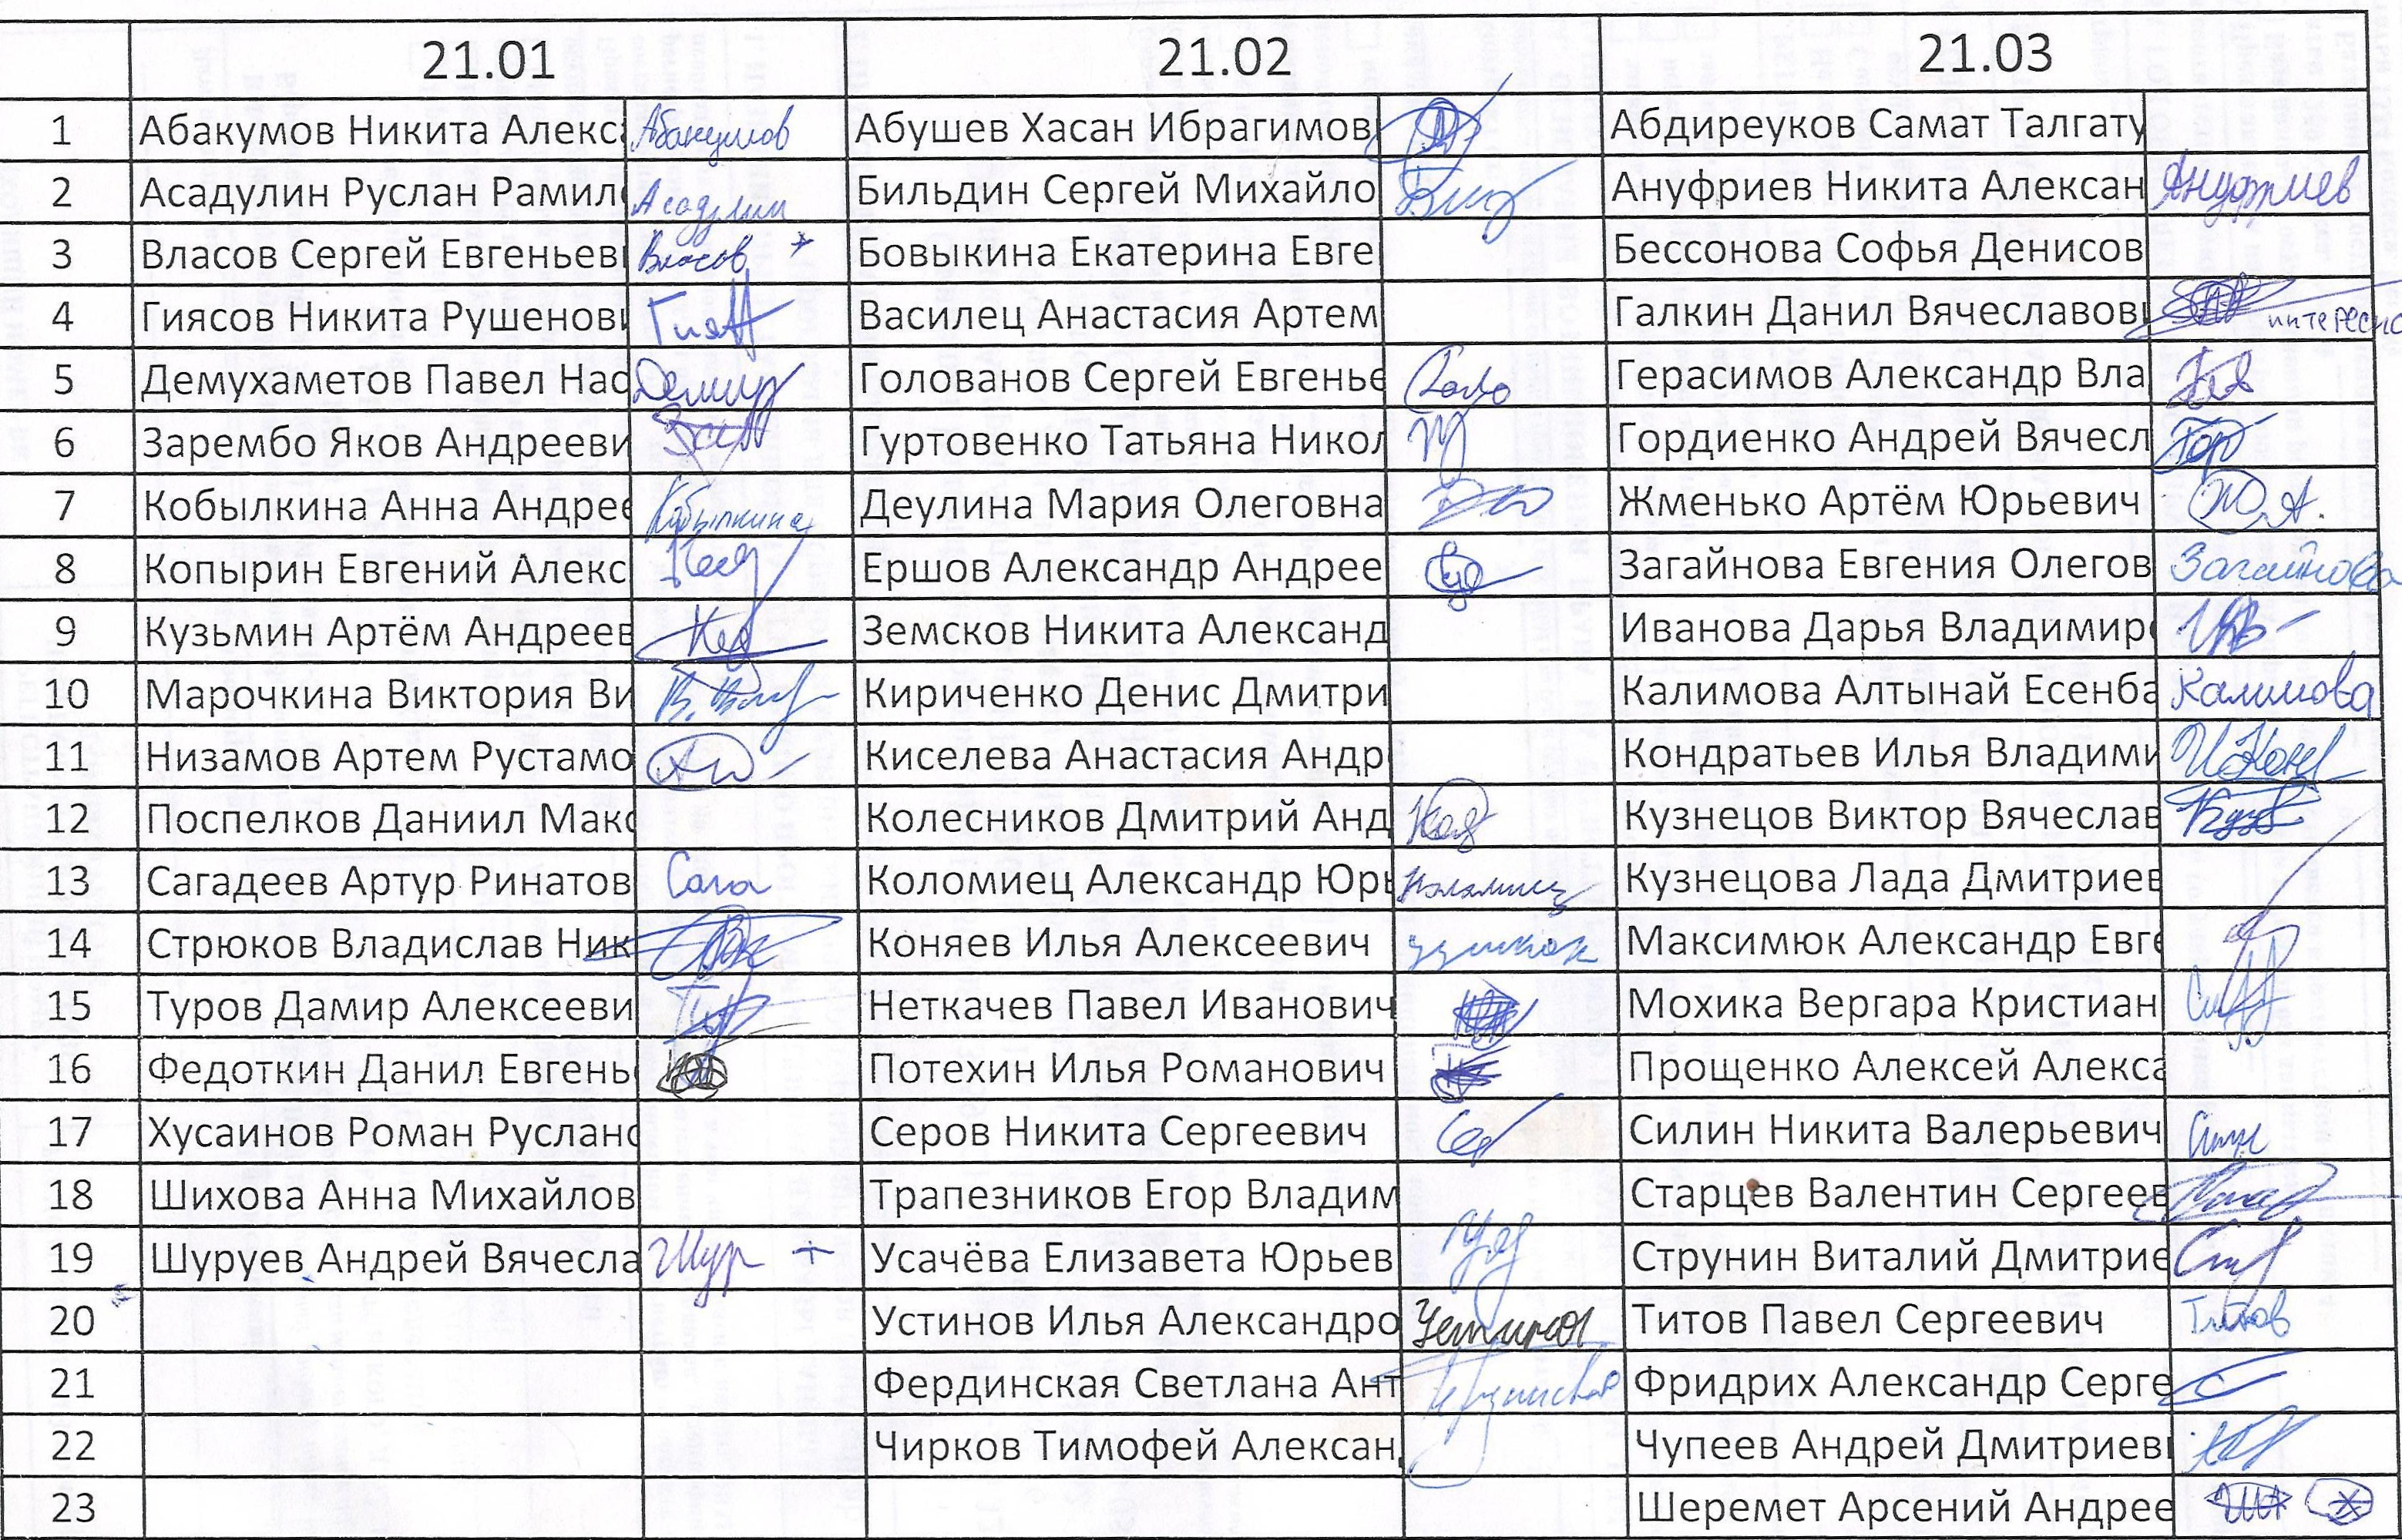 21.01 21.02 21.03
1 Абакумов Никита Алекса Абакумов Абушев Хасан Ибрагимов Абдиреуков Самат Талгату
2 Асадулин Руслан Рамил Асадулин Бильдин Сергей Михайло Ануфриев Никита Алексан Ануфриев
3 Власов Сергей Евгеньев Власов + Бовыкина Екатерина Евге Бессонова Софья Денисов
4 Гиясов Никита Рушенови Василец Анастасия Артем Галкин Данил Вячеславов интересно
5 Демухаметов Павел Нас Голованов Сергей Евгенье Голо Герасимов Александр Вла
6 Зарембо Яков Андрееви Гуртовенко Татьяна Никол Гордиенко Андрей Вячесл Гор
7 Кобылкина Анна Андрее Кобылкина Деулина Мария Олеговна Жменько Артём Юрьевич Ж.А.
8 Копырин Евгений Алекс Ершов Александр Андрее Загайнова Евгения Олегов Загайнова
9 Кузьмин Артём Андреев Земсков Никита Александ Иванова Дарья Владимир
10 Марочкина Виктория Ви Кириченко Денис Дмитри Калимова Алтынай Есенба Калимова
11 Низамов Артем Рустамо Киселева Анастасия Андр Кондратьев Илья Владими
12 Поспелков Даниил Макс Колесников Дмитрий Анд Кузнецов Виктор Вячеслав
13 Сагадеев Артур Ринатов Сага Коломиец Александр Юрь Коломиец Кузнецова Лада Дмитриев
14 Стрюков Владислав Ник Коняев Илья Алексеевич Максимюк Александр Евге
15 Туров Дамир Алексееви Неткачев Павел Иванович Мохика Вергара Кристиан
16 Федоткин Данил Евгень Потехин Илья Романович Прощенко Алексей Алекса
17 Хусаинов Роман Руслано Серов Никита Сергеевич Силин Никита Валерьевич
18 Шихова Анна Михайлов Трапезников Егор Владим Старцев Валентин Сергеев
19 Шуруев Андрей Вячесла Шур + Усачёва Елизавета Юрьев Струнин Виталий Дмитрие
20 Устинов Илья Александро Устинов Титов Павел Сергеевич Титов
21 Фердинская Светлана Ант Фридрих Александр Серге
22 Чирков Тимофей Алексан Чупеев Андрей Дмитриев
23 Шеремет Арсений Андрее